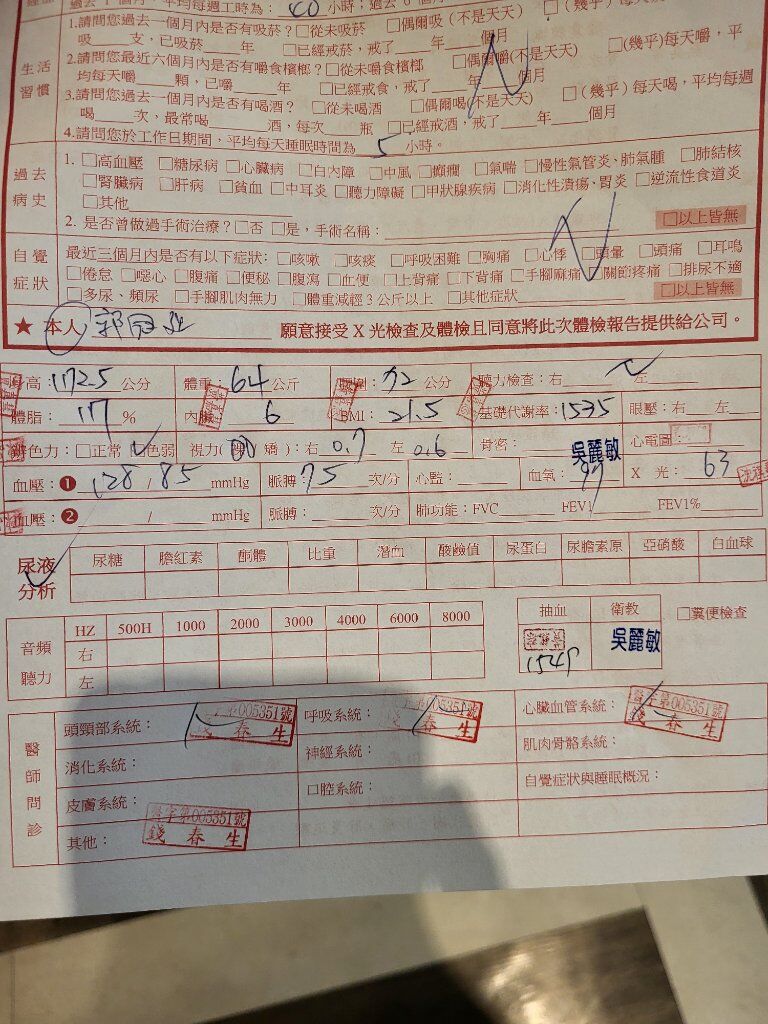 過去1個月，平均每週工時為：60 小時；過去6個
1.請問您過去一個月內是否有吸菸？□從未吸菸 □偶爾吸（不是天天） □（幾乎）每天吸
吸＿＿支，已吸菸＿＿年 □已經戒菸，戒了＿＿年＿＿個月
2.請問您最近六個月內是否有嚼食檳榔？□從未嚼食檳榔 □偶爾嚼(不是天天) □(幾乎)每天嚼，平
均每天嚼＿＿顆，已嚼＿＿年 □已經戒食，戒了＿＿年＿＿個月
生活習慣
3.請問您過去一個月內是否有喝酒？ □從未喝酒 □偶爾喝(不是天天) □（幾乎）每天喝，平均每週
喝＿＿次，最常喝＿＿酒，每次＿＿瓶 □已經戒酒，戒了＿＿年＿＿個月
4.請問您於工作日期間，平均每天睡眠時間為 5 小時。
過去病史
1. □高血壓 □糖尿病 □心臟病 □白內障 □中風 □癲癇 □氣喘 □慢性氣管炎、肺氣腫 □肺結核
□腎臟病 □肝病 □貧血 □中耳炎 □聽力障礙 □甲狀腺疾病 □消化性潰瘍、胃炎 □逆流性食道炎
□其他
2. 是否曾做過手術治療？□否 □是，手術名稱： □以上皆無
自覺症狀
最近三個月內是否有以下症狀： □咳嗽 □咳痰 □呼吸困難 □胸痛 □心悸 □頭暈 □頭痛 □耳鳴
□倦怠 □噁心 □腹痛 □便秘 □腹瀉 □血便 □上背痛 □下背痛 □手腳麻痛 □關節疼痛 □排尿不適
□多尿、頻尿 □手腳肌肉無力 □體重減輕3公斤以上 □其他症狀 □以上皆無
★ 本人 郭冠 願意接受X光檢查及體檢且同意將此次體檢報告提供給公司。
身高：172.5 公分 體重：64 公斤 公分 聽力檢查：右 左
體脂：17 % 內脂 6 BMI：21.5 基礎代謝率：1535 眼壓：右 左
辨色力：□正常 □色弱 視力（裸 矯）：右 0.7 左 0.6 骨密： 吳麗敏 心電圖：
血壓：❶ 128 / 85 mmHg 脈膊：75 次/分 心監： 血氧：99 X 光：63
血壓：❷ / mmHg 脈膊： 次/分 肺功能：FVC FEV1 FEV1%
尿液分析
尿糖 膽紅素 酮體 比重 潛血 酸鹼值 尿蛋白 尿膽素原 亞硝酸 白血球
音頻聽力
HZ 500H 1000 2000 3000 4000 6000 8000
右
左
抽血 衛教 □糞便檢查
吳麗敏
醫師問診
頭頸部系統： 字第005351號 錢春生 呼吸系統： 第005351號 錢春生 心臟血管系統： 醫字第005351號 錢春生
消化系統： 神經系統： 肌肉骨骼系統：
皮膚系統： 口腔系統： 自覺症狀與睡眠概況：
其他： 醫字第005351號 錢春生